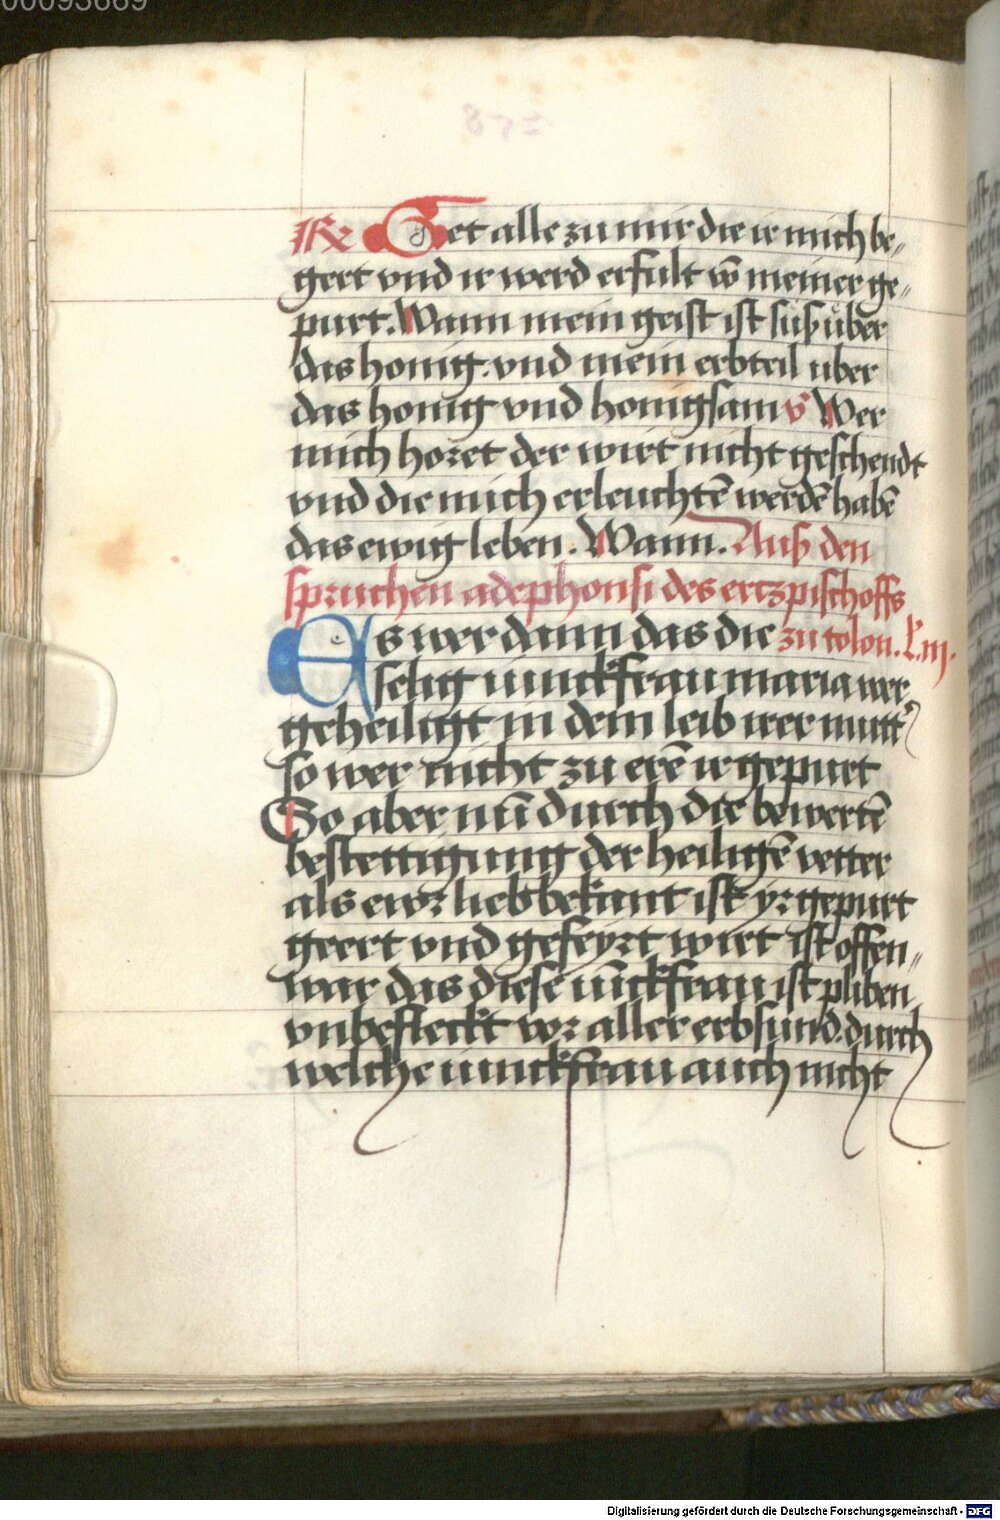 00093669
R Get alle zu mir die ir mich be„
gert vnd ir werd erfult vō meiner ge„
purt. Wann mein geist ist süß über
das honig. vnd mein erbteil uber
das honig vnd honigsam v̄ Wer
mich horet der wirt nicht geschendt
vnd die mich erleuchtē werdē habē
das ewig leben. Wann. Auß den
spruchen adephonsi des ertzpischoffs
Es wer dann das die zu tolon. L. iij.
selig iunckfrau maria wer
geheiligt in dem leib irer mutt'
so wer nicht zu erē ir gepurt
So aber nū durch die bewertē
bestettigung der heiligē vetter
als ewr lieb bekant ist yr gepurt
geert vnd gefeyrt wirt ist offen„
war das diese iūckfrau ist pliben
vnbefleckt vor aller erbsund. durch
welche iunckfrau auch nicht
Digitalisierung gefördert durch die Deutsche Forschungsgemeinschaft - DFG